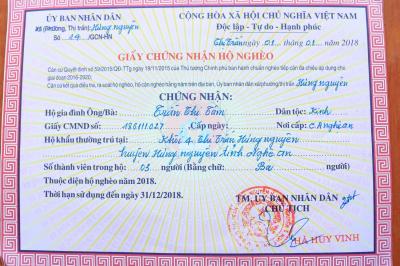 ỦY BAN NHÂN DÂN
CỘNG HÒA XÃ HỘI CHỦ NGHĨA VIỆT NAM
Xã (Phường, Thị trấn): Hưng nguyên
Độc lập - Tự do - Hạnh phúc
Số 14 /GCN-HN
Thị Trấn ngày 01 / 01 / 2018
GIẤY CHỨNG NHẬN HỘ NGHÈO
Căn cứ Quyết định số 59/2015/QĐ-TTg ngày 19/11/2015 của Thủ tướng Chính phủ ban hành chuẩn nghèo tiếp cận đa chiều áp dụng cho
giai đoạn 2016-2020;
Hưng nguyên
CHỨNG NHẬN:
Hộ gia đình Ông/Bà: Trần Thị Tâm Dân tộc: Kinh
Giấy CMND số: 186111027 Cấp ngày: Nơi cấp: C.A nghệ an
Hộ khẩu thường trú tại: Khối 4 Thị Trấn Hưng nguyên
huyện Hưng nguyên tỉnh Nghệ an
Số thành viên trong hộ: 03 người (Bằng chữ: Ba người)
Thuộc diện hộ nghèo năm 2018.
Thời hạn sử dụng đến ngày 31/12/2018.
TM, ỦY BAN NHÂN DÂN
CHỦ TỊCH
HÀ HUY VINH